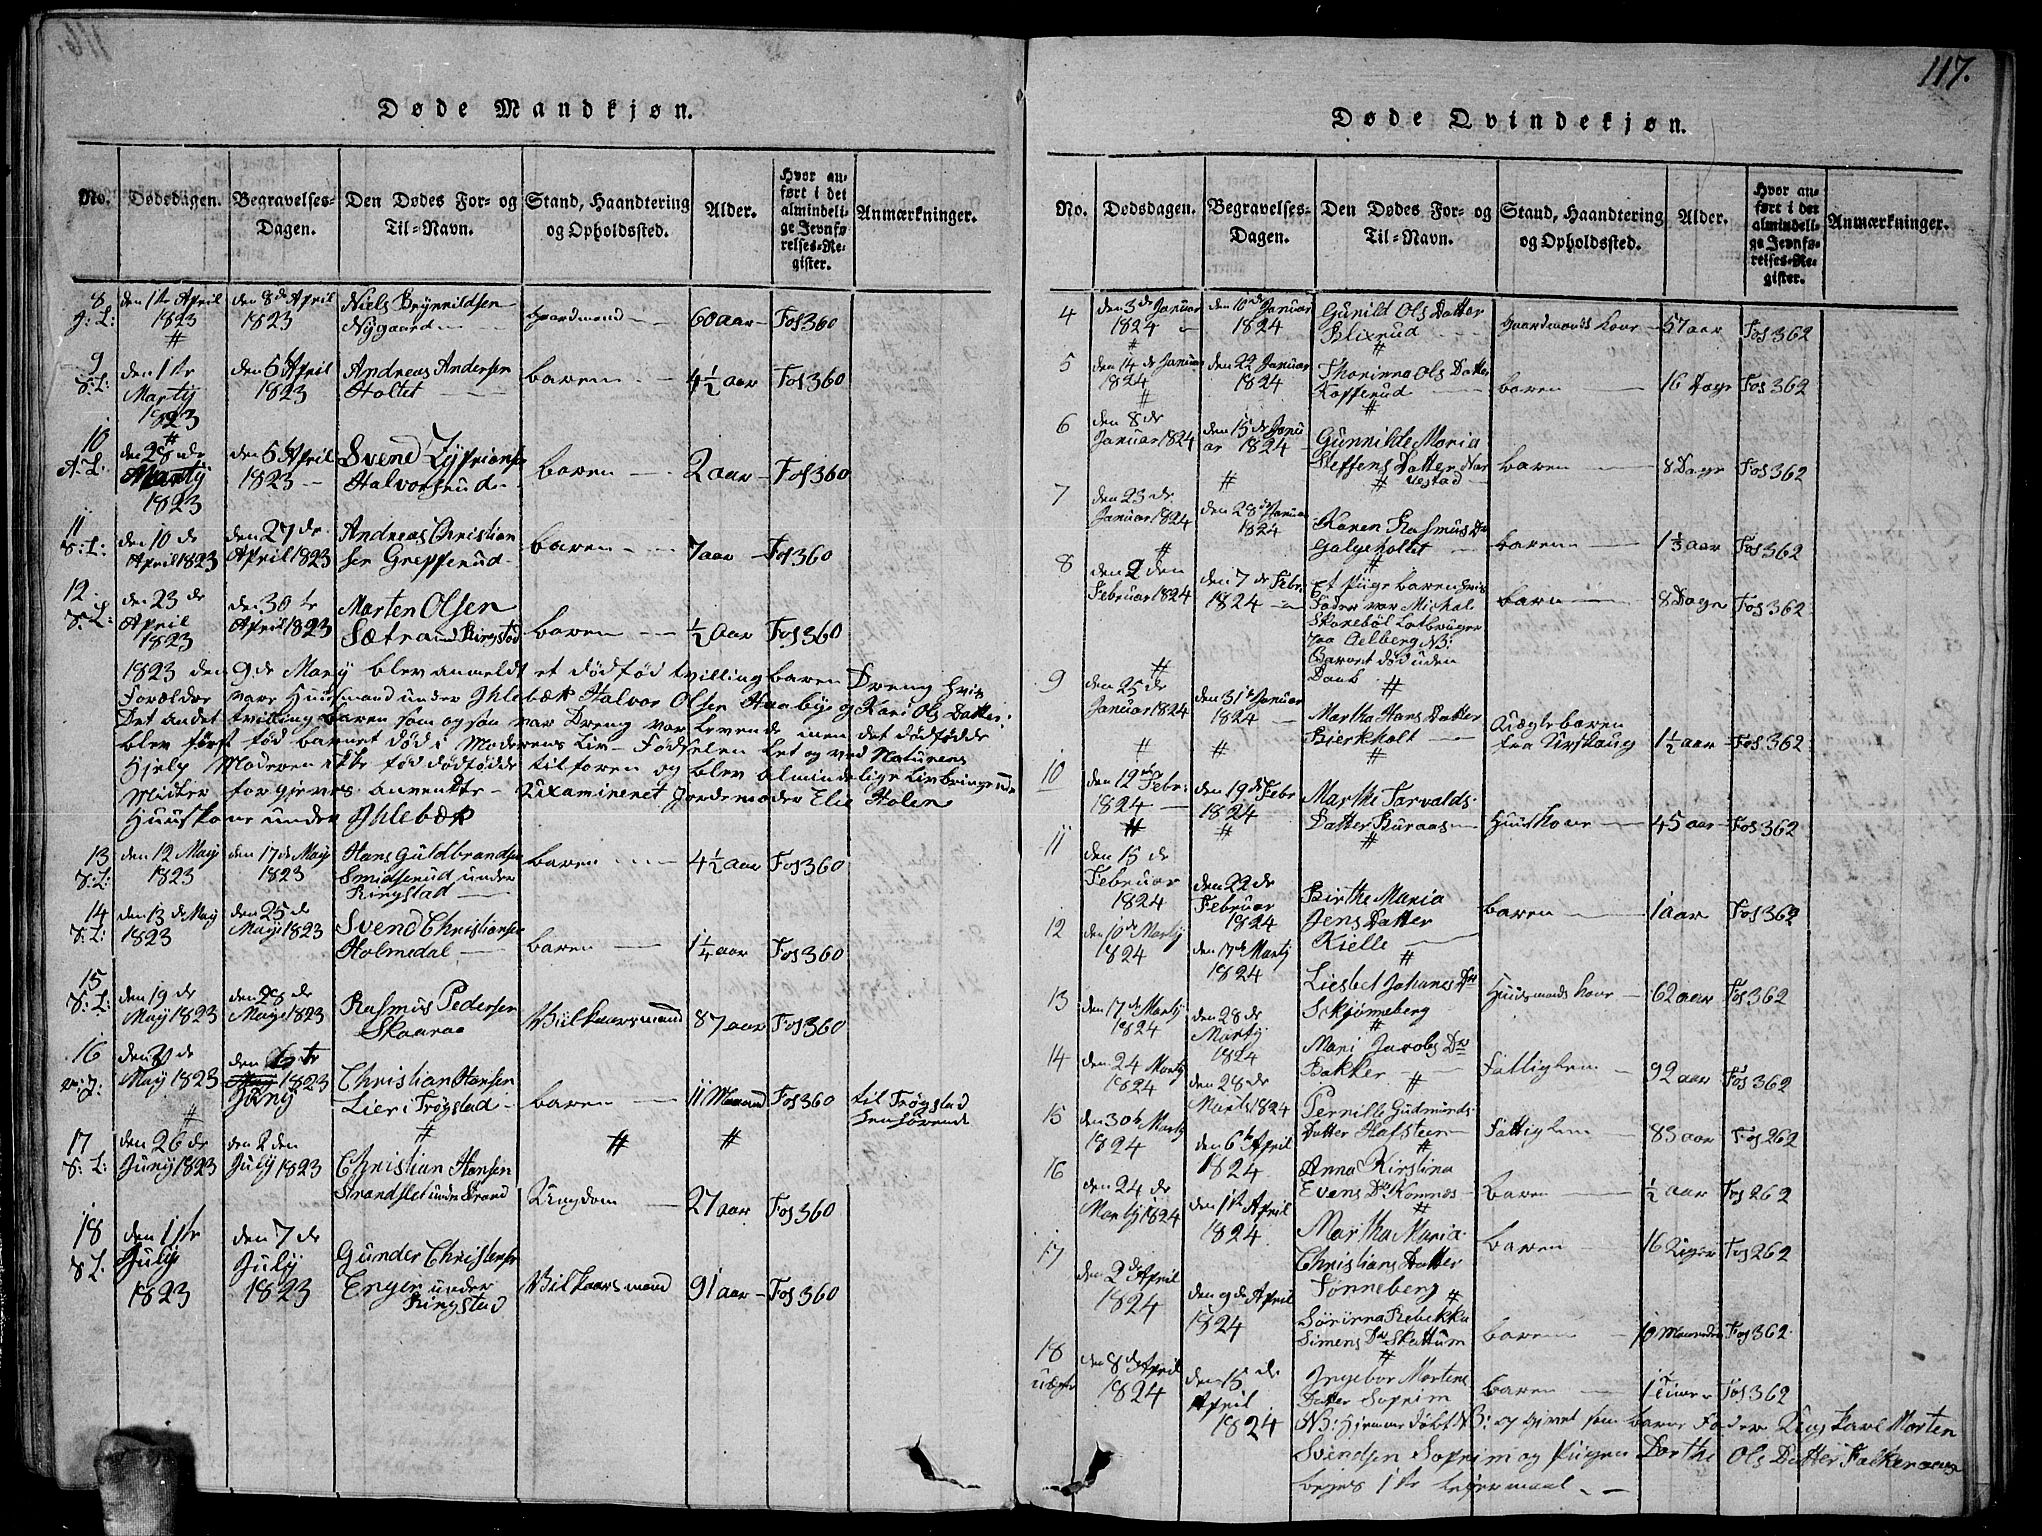 Døde Mandkjøn.
No. Dødsdagen. Begravelses-Dagen. Den Dødes For- og Til-Navn. Stand, Haandtering og Opholdssted. Alder. Hvor anført i det almindelige Jevnførelses-Register. Anmærkninger.
8 den 1te April 1823 den 8de April 1823 Niels Brynnildsen Nygaard Gaardmand 60 aar Fos 360
9 S: L: den 1te Martij 1823 den 6te April 1823 Andreas Andersen Holtet baren 4½ aar Fos 360
10 A: L: den 28 de Martij 1823 den 6te April 1823 Svend Halvorsrud baren 2 aar Fos 360
11 S: L: den 10 de April 1823 den 27 de April 1823 Andreas Christian sen Grefferud baren 7 aar Fos 360
12 S: L: den 23 de April 1823 den 30 te April 1823 Morten Olsen Sætra Ringstad baren ½ aar Fos 360
1823 den 9 de Marij blev anmeldt et dødfød tvilling baren Dreng hvis
Forældre vare Huusmand under Ihlebæk Halvor Olsen Haabye og Kari Ols Datter:
Det andet tvilling baren som ogsaa var Dreng var levende men det dødfødde
blev först fød barnet död i Moderens Liv – Fødselen let og ved Naturens
Hjelp Moderen ikke fød dødfødde tilforen og blev almindelige Livbringende
Midler forgjeves anvendte – Examineret Jordemoder Elie Holen
Huuskone under Ihlebæk
13 S: L: den 12 Maij 1823 den 17 de Maij 1823 Hans Guldbrandsen Smidserud under Ringstad baren 4½ aar Fos 360
14 S: L: den 13 de Maij 1823 den 25 de Maij 1823 Svend Christiansen Holmedal baren 1¼ aar Fos 360
15 S: L: den 19 de Maij 1823 den 28 de Maij 1823 Rasmus Pedersen Skaaraa Vilkaarsmand 87 aar Fos 360
16 den Maij 1823 den 1823 Juny Christian Hansen Lier i Trøgstad baren 11 Maaned Fos 360 til Trøgstad henførende
17 S: L: den 26 de Juny 1823 den 2 den July 1823 Christian Hansen Strandslet unde Strand Ungdom 27 aar Fos 360
18 S: L: den 1te July 1823 den 7 de July 1823 Gunder Christensen Enger under Ringstad Vilkaarsmand 91 aar Fos 360
117.
Døde Qvindekjøn.
No. Dødsdagen. Begravelses-Dagen. Den Dødes For- og Til-Navn. Stand, Haandtering og Opholdssted. Alder. Hvor anført i det almindelige Jevnførelses-Register. Anmærkninger.
4 den 3de Januar 1824 den 10de Januar 1824 Gunild Ols Datter Blixrud Gaardmands Kone 57 aar Fos 362
5 den 14 de Januar 1824 den 22 Januar 1824 Thorinna Ols Datter Kopperud baren 16 Dage Fos 362
6 den 8 de Januar 1824 den 15 de Januar 1824 Gunnilde Maria Steffens Datter Narvestad baren 8 Dage Fos 362
7 den 23 de Januar 1824 den 28 de Januar 1824 Karen Rasmus Dr Galgeholtet baren 1⅓ aar Fos 362
8 den 2 den Februar 1824 den 7 de Febr. 1824 Et Pige baren hvis Fader var Michel Skarebøl Lotbruger paa Oelberg NB: Barnet død uden Daab baren 8 Dage Fos 362
9 den 25 de Januar 1824 den 31te Januar 1824 Martha Hans Datter Bierkholt Uægte baren fra Urskaug 1½ aar Fos 362
10 den 12te Febr: 1824 den 19 de Febr 1824 Marthe Torvalds Datter Buraas Huuskone 45 aar Fos 362
11 den 15 de Februar 1824 den 22 de Februar 1824 Birthe Maria Jens Datter Kielle baren 1 aar Fos 362
12 den 10 de Martij 1824 den 17 de Martij 1824 Liesbet Johanes Dr Schjønneberg Huusmands kone 62 aar Fos 362
13 den 17 de Martij 1824 den 28 de Martij 1824 Mari Jacobs Dr Bakker Fattiglem 92 aar Fos 362
14 den 24 Martij 1824 den 28 de Martij 1824 Pernille Gudmunds Datter Hafsteen Fattiglem 83 aar Fos 262
15 den 30te Martij 1824 den 6te April 1824 Anna Kirstina Evens Dr Komnæs baren ½ aar Fos 262
16 den 24 de Martij 1824 den 1te April 1824 Martha Maria Christians Datter Sønneberg baren 16 Uger Fos 262
17 den 2 de April 1824 den 9 de April 1824 Sørinna Rebekka Simens Dr Skattum baren 10 Maaneder Fos 362
18 uægte den 8 de April 1824 den 15 de April 1824 Ingebor Mortens Datter Soprim baren 1 Time Fos 362
NB: Hjemme døbt NB: og hjevet som barne Fader Ungkarl Morten
Svendsen Soprim og Pigen Dorthe Ols Datter
begges 1te leiermaal